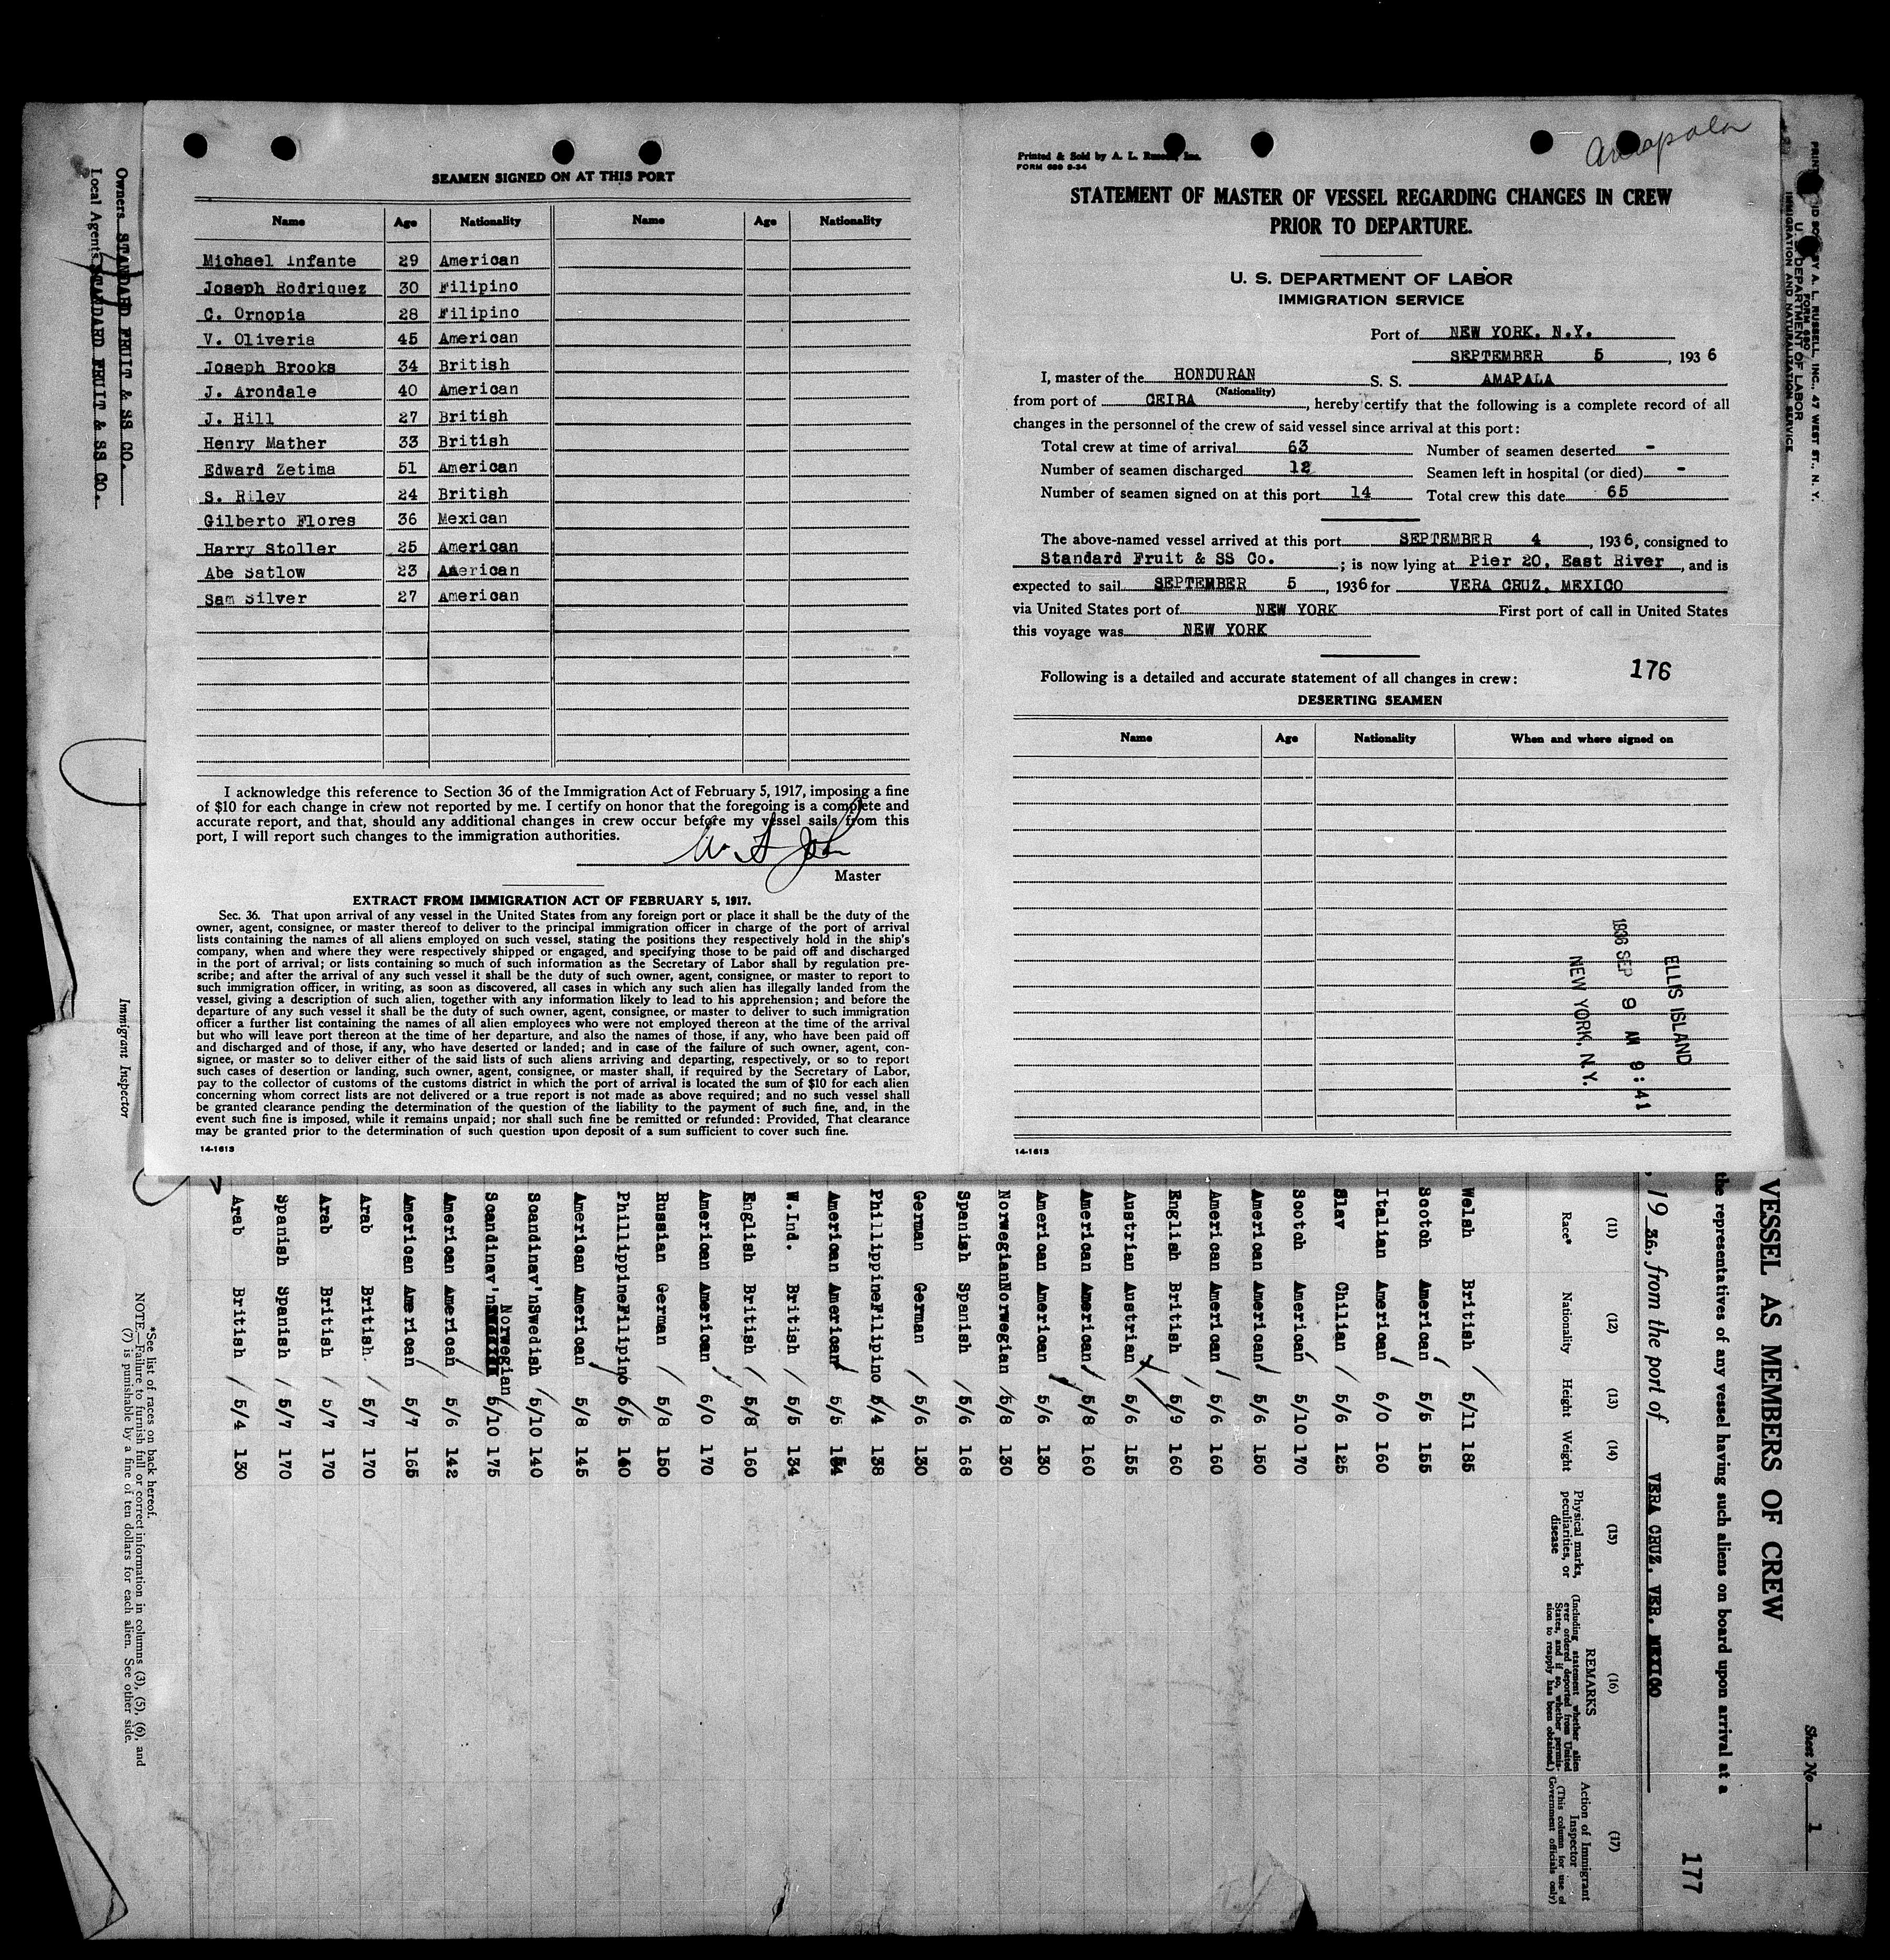 SEAMEN SIGNED ON AT THIS PORT
Name Age Nationality Name Age Nationality
Michael Infante 29 American
Joseph Rodriquez 30 Filipino
C. Ornopia 28 Filipino
V. Oliveria 45 American
Joseph Brooks 34 British
J. Arondale 40 American
J. Hill 27 British
Henry Mather 33 British
Edward Zetima 51 American
S. Riley 24 British
Gilberto Flores 36 Mexican
Harry Stoller 25 American
Abe Satlow 23 American
Sam Silver 27 American
I acknowledge this reference to Section 36 of the Immigration Act of February 5, 1917, imposing a fine
of $10 for each change in crew not reported by me. I certify on honor that the foregoing is a complete and
accurate report, and that, should any additional changes in crew occur before my vessel sails from this
port, I will report such changes to the immigration authorities.
Master
EXTRACT FROM IMMIGRATION ACT OF FEBRUARY 5, 1917.
Sec. 36. That upon arrival of any vessel in the United States from any foreign port or place it shall be the duty of the
owner, agent, consignee, or master thereof to deliver to the principal immigration officer in charge of the port of arrival
lists containing the names of all aliens employed on such vessel, stating the positions they respectively hold in the ship's
company, when and where they were respectively shipped or engaged, and specifying those to be paid off and discharged
in the port of arrival; or lists containing so much of such information as the Secretary of Labor shall by regulation pre-
scribe; and after the arrival of any such vessel it shall be the duty of such owner, agent, consignee, or master to report to
such immigration officer, in writing, as soon as discovered, all cases in which any such alien has illegally landed from the
vessel, giving a description of such alien, together with any information likely to lead to his apprehension; and before the
departure of any such vessel it shall be the duty of such owner, agent, consignee, or master to deliver to such immigration
officer a further list containing the names of all alien employees who were not employed thereon at the time of the arrival
but who will leave port thereon at the time of her departure, and also the names of those, if any, who have been paid off
and discharged and of those, if any, who have deserted or landed; and in case of the failure of such owner, agent, con-
signee, or master so to deliver either of the said lists of such aliens arriving and departing, respectively, or so to report
such cases of desertion or landing, such owner, agent, consignee, or master shall, if required by the Secretary of Labor,
pay to the collector of customs of the customs district in which the port of arrival is located the sum of $10 for each alien
concerning whom correct lists are not delivered or a true report is not made as above required; and no such vessel shall
be granted clearance pending the determination of the question of the liability to the payment of such fine, and, in the
event such fine is imposed, while it remains unpaid; nor shall such fine be remitted or refunded: Provided, That clearance
may be granted prior to the determination of such question upon deposit of a sum sufficient to cover such fine.
14-1613
Amapala
Printed & Sold by A. L. Russell, Inc.
FORM 689 9-34
STATEMENT OF MASTER OF VESSEL REGARDING CHANGES IN CREW
PRIOR TO DEPARTURE.
U. S. DEPARTMENT OF LABOR
IMMIGRATION SERVICE
Port of NEW YORK, N.Y.
SEPTEMBER 5, 1936
I, master of the HONDURAN S. S. AMAPALA
(Nationality)
from port of CEIBA, hereby certify that the following is a complete record of all
changes in the personnel of the crew of said vessel since arrival at this port:
Total crew at time of arrival 63 Number of seamen deserted -
Number of seamen discharged 12 Seamen left in hospital (or died) -
Number of seamen signed on at this port 14 Total crew this date 65
The above-named vessel arrived at this port SEPTEMBER 4, 1936, consigned to
Standard Fruit & SS Co.; is now lying at Pier 20, East River, and is
expected to sail SEPTEMBER 5, 1936 for VERA CRUZ, MEXICO
via United States port of NEW YORK First port of call in United States
this voyage was NEW YORK
176
Following is a detailed and accurate statement of all changes in crew:
DESERTING SEAMEN
Name Age Nationality When and where signed on
ELLIS ISLAND
1936 SEP 9 AM 9:41
NEW YORK, N.Y.
14-1613
PRINTED AND SOLD BY A. L. RUSSELL, INC., 47 WEST ST., N. Y.
FORM 680
U. S. DEPARTMENT OF LABOR
IMMIGRATION AND NATURALIZATION SERVICE
Sheet No. 1
VESSEL AS MEMBERS OF CREW
the representatives of any vessel having such aliens on board upon arrival at a
, 1936, from the port of VERA CRUZ, VER. MEXICO
177
(11) (12) (13) (14) (15) (16) (17)
Race* Nationality Height Weight Physical marks, peculiarities, or disease REMARKS (Including statement whether alien ever ordered deported from United States, and if so, whether permission to reapply has been obtained.) Action of Immigrant Inspector (This column for use of Government officials only)
Welsh British 5/11 185
Scotch American 5/5 155
Italian American 6/0 160
Slav Chilian 5/6 125
Scotch American 5/10 170
American American 5/6 150
American American 5/6 160
English British 5/9 160
Austrian Austrian 5/6 155
American American 5/8 160
American American 5/6 130
Norwegian Norwegian 5/8 130
Spanish Spanish 5/6 168
German German 5/6 130
Phillippine Filipino 5/4 138
American American 5/5 154
W.Ind. British 5/5 134
English British 5/8 160
American American 6/0 170
Russian German 5/8 150
Phillippine Filipino 6/5 140
American American 5/8 145
Scandinav'n Swedish 5/10 140
Scandinav'n Norwegian 5/10 175
American American 5/6 142
American American 5/7 165
Arab British 5/7 170
Arab British 5/7 170
Spanish Spanish 5/7 170
Arab British 5/4 130
*See list of races on back hereof.
NOTE.—Failure to furnish full or correct information in columns (3), (5), (6), and
(7) is punishable by a fine of ten dollars for each alien. See other side.
Immigrant Inspector
Owners STANDARD FRUIT & SS CO.
Local Agents STANDARD FRUIT & SS CO.